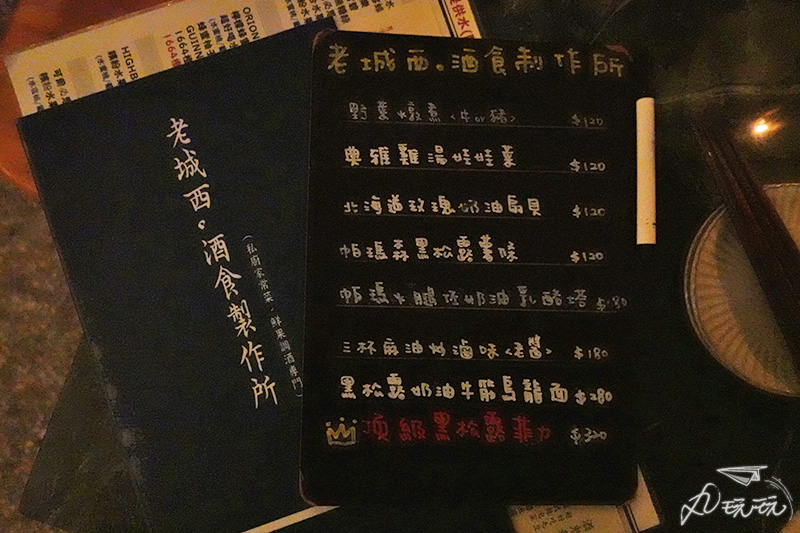 ORION
GUINN
1664
1664
HIGHB
老城西。酒食製作所
(私廚家常菜．鮮果調酒專門)
老城西。酒食制作所
野菜燉煮<牛or豬> $120
典雅雞湯娃娃菜 $120
北海道玫瑰奶油扇貝 $120
帕瑪森黑松露薯條 $120
帕瑪火腿佐奶油乳酪塔 $180
三杯麻油炒滷味<老醬> $180
黑松露奶油牛筋烏龍麵 $280
頂級黑松露菲力 $320
玩玩